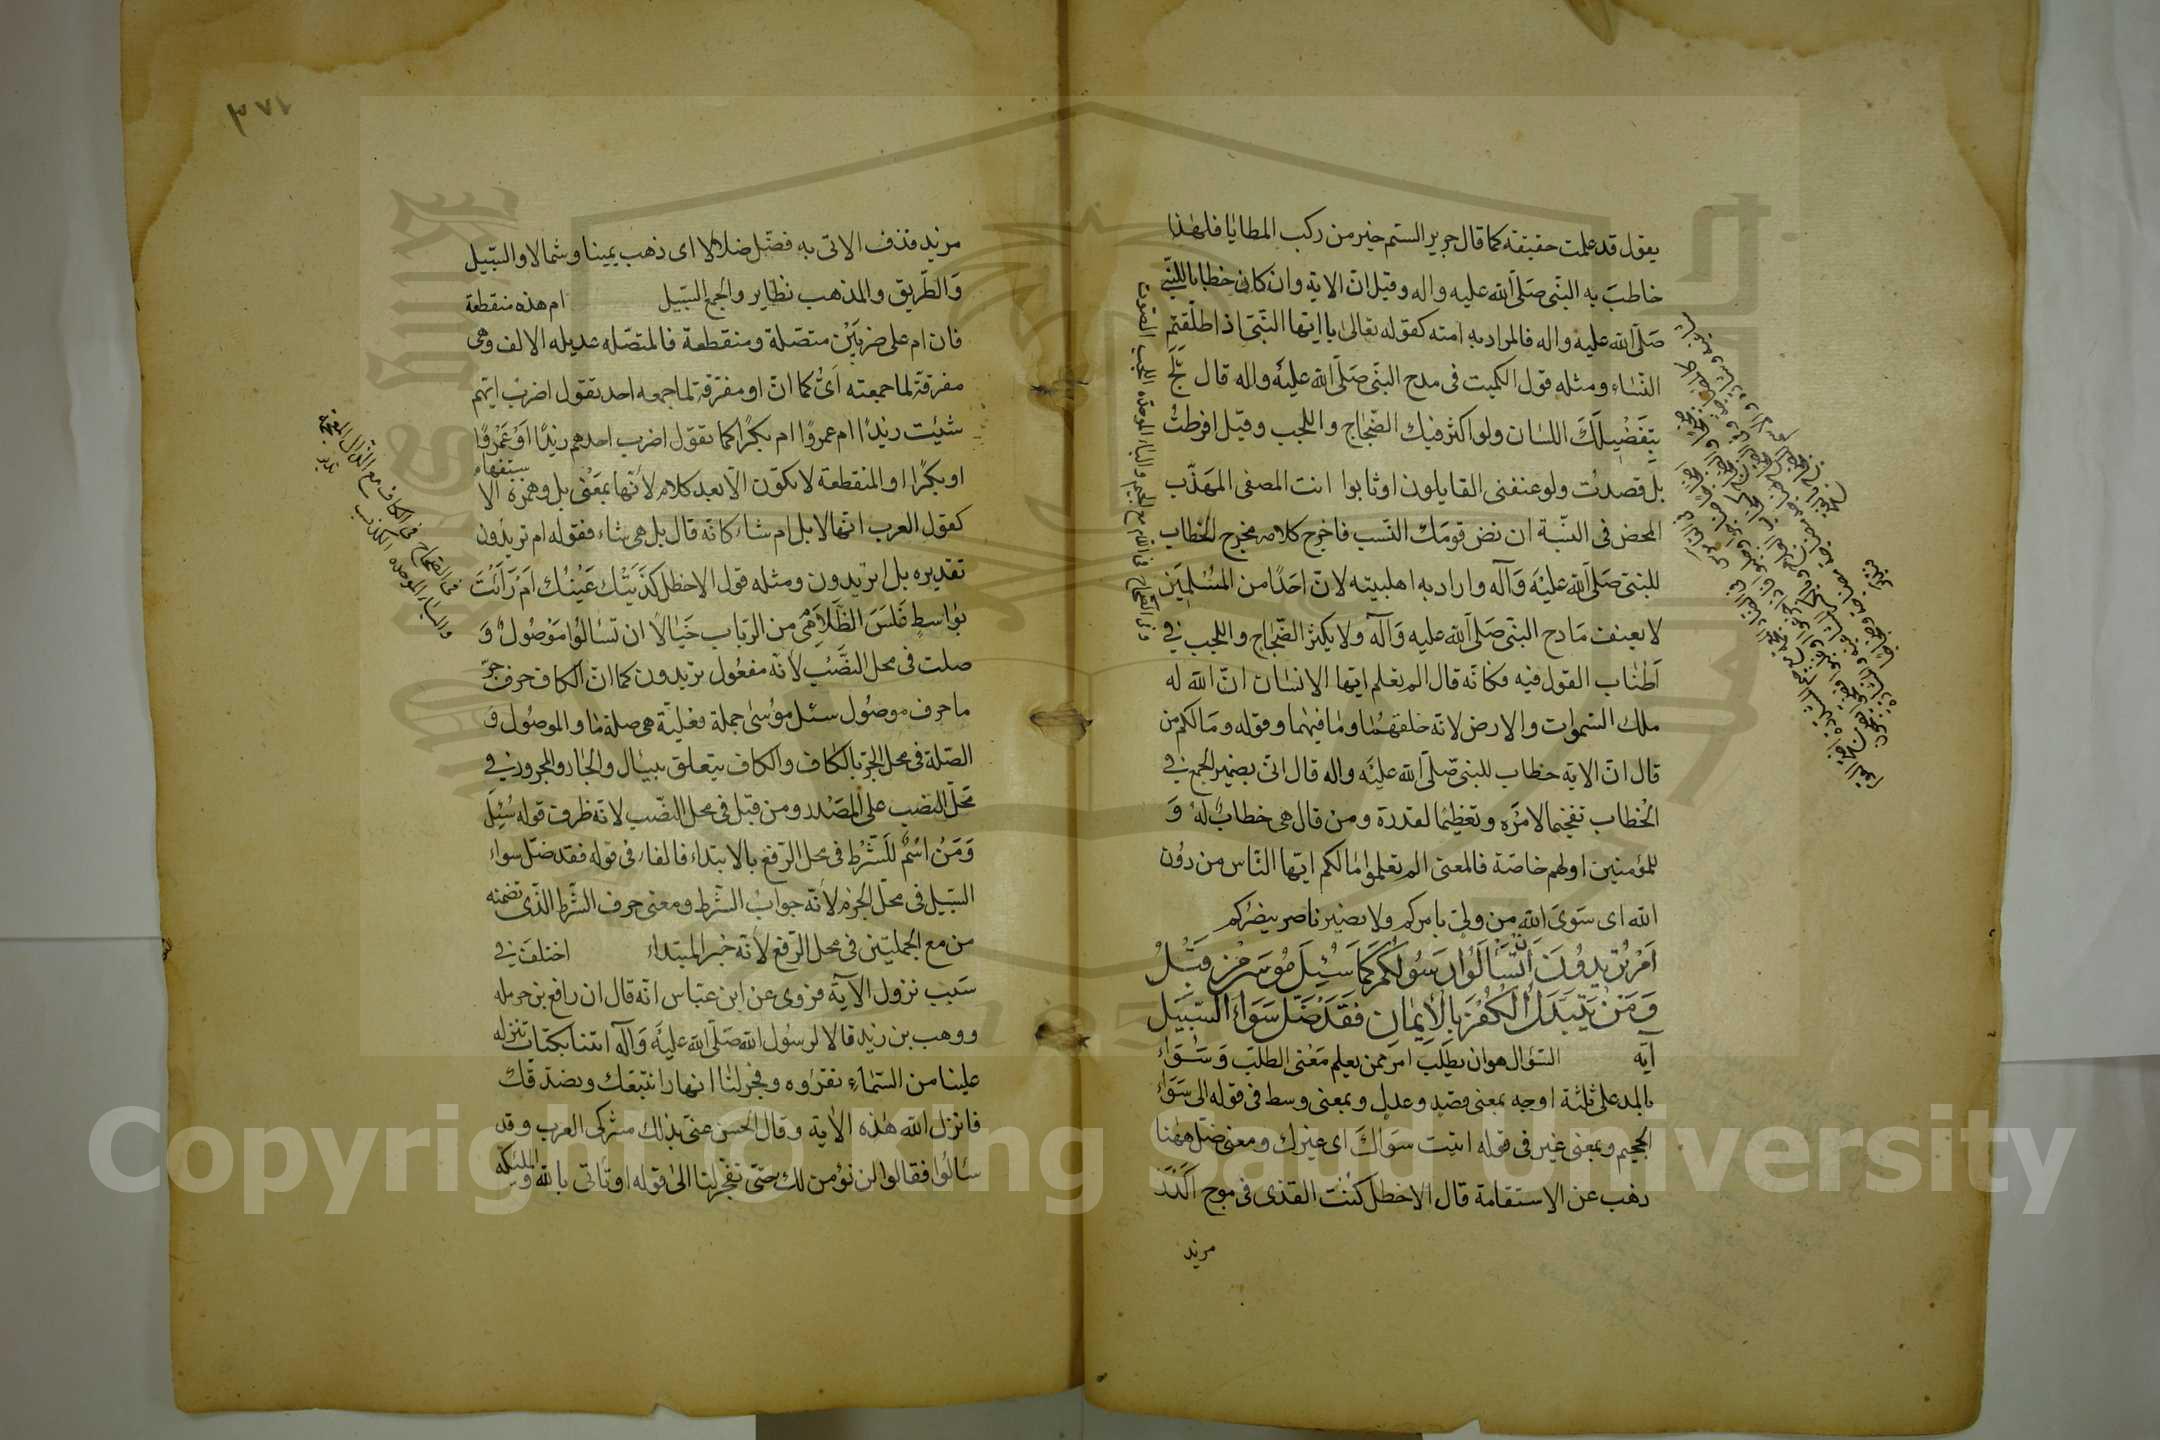 يقول قد علمت حقيقة كما قال جرير الستم خير من ركب المطايا فلهذا
خاطب به النبى صلى الله عليه واله وقيل ان الاية وان كان خطابا للنبى
صلى الله عليه واله فالمراد به امته كقوله تعالى يا ايها النبى اذا طلقتم
النساء ومثله قول الكميت فى مدح النبى صلى الله عليه واله قال لج
بتفضيلك اللسان ولو اكثر فيك الضجاج واللجب وقيل افرطت
بل قصدت ولو عنفنى القايلون او ثابوا انت المصفى المهذب
المحض فى النسبة ان نض قومك النسب فاخرج كلامه مخرج الخطاب
للنبى صلى الله عليه وآله واراد به اهلبيته لان احدا من المسلمين
لا يعنف مادح النبى صلى الله عليه وآله ولا يكثر الضجاج واللجب فى
اطناب القول فيه فكانه قال الم تعلم ايها الانسان ان الله له
ملك السموات والارض لانه خلقهما وما فيهما وقوله وما لكم من
قال ان الاية خطاب للنبى صلى الله عليه واله قال اتى بضمير الجمع فى
الخطاب تفخيما لامره وتعظيما لقدره ومن قال هى خطاب له و
للمؤمنين او لهم خاصة فالمعنى الم تعلموا مالكم ايها الناس من دون
الله اى سوى الله من ولى يامركم ولا نصير ناصر ينصركم
ام تريدون ان تسألوا رسولكم كما سئل موسى من قبل
ومن يتبدل الكفر بالايمان فقد ضل سواء السبيل
آية السؤال هو ان يطلب امر ممن يعلم معنى الطلب وسواء
بالمد على ثلثة اوجه بمعنى قصد وعدل وبمعنى وسط فى قوله الى سواء
الجحيم وبمعنى غير فى قوله اتيت سواك اى غيرك ومعنى ضل ههنا
ذهب عن الاستقامة قال الاخطل كنت القذى فى موج اكدر
مزبد
٣٧١
مزبد قذف الاتى به فضل ضلالا اى ذهب يمينا وشمالا والسبيل
والطريق والمذهب نظاير والجمع السبيل ام هذه منقطعة
فان ام على ضربين متصلة ومنقطعة فالمتصلة عديله الالف وهى
مفرقة لما جمعته اى كما ان او مفرقة لما جمعه احد تقول اضرب ايهم
شئت زيدا ام عمروا ام بكرا كما تقول اضرب احدهم زيدا او عمروا
او بكرا او المنقطعة لا يكون الا بعد كلام لانها بمعنى بل وهمزة الاستفهام
كقول العرب انها لابل ام شاء كانه قال بل هى شاء فقوله ام تريدون
تقديره بل اتريدون ومثله قول الاخطل كذبتك عينك ام رأيت
بواسط غلس الظلام من الرباب خيالا ان تسألوا موصول و
صلت فى محل النصب لانه مفعول تريدون كما ان الكاف حرف جر
ما حرف موصول سئل موسى جملة فعلية هى صلة ما والموصول و
الصلة فى محل الجر بالكاف والكاف يتعلق بيسأل والجار والمجرور فى
محل النصب على المصدر ومن قبل فى محل النصب لانه ظرف قوله سئل
ومن اسم للشرط فى محل الرفع بالابتداء فالفاء فى قوله فقد ضل سواء
السبيل فى محل الجزم لانه جواب الشرط ومعنى حرف الشرط الذى تضمنه
من مع الجملتين فى محل الرفع لانه خبر المبتداء اختلف فى
سبب نزول الآية فروى عن ابن عباس انه قال ان رافع بن حرمله
ووهب بن زيد قالا لرسول الله صلى الله عليه وآله ائتنا بكتاب تنزله
علينا من السماء نقراوه وفجر لنا انهارا نتبعك ونصدقك
فانزل الله هذه الاية وقال الحسن عنى بذلك مشركى العرب وقد
سألوا فقالوا لن نؤمن لك حتى تفجر لنا الى قوله او تأتى بالله والملئكة
Copyright © King Saud University